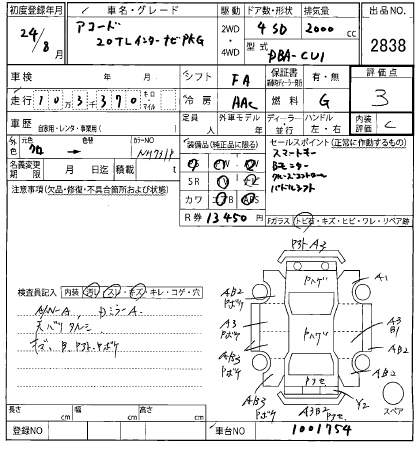 初度登録年月 車名・グレード ドア数・形状 排気量 出品NO
24/8月 アコード 2WD・4WD 4 SD 2000 cc 2838
20TLインターナビPKG 型式 DBA-CU1
車検 年 月 シフト FA 保証書 有・無 評価点
走行 10万3千370 キロ・マイル 冷房 AAC 燃料 G 3
車歴 自家用・レンタ・事業用( ) 定員 人 外車モデル 年 ディーラー・並行 ハンドル 左・右 内装評価 C
外色 元色 色替 カラーNO 装備品(純正品に限る) セールスポイント(正常に作動するもの)
クロ → NH731P スマートキー
名義変更期限 月 日迄 積載 t SR Bモニター
クルーズコントロール
注意事項(欠品・修復・不具合箇所および状態) カワ パドルシフト
R券 13450 円
Fガラス トビ石・キズ・ヒビ・ワレ・リペア跡
検査員記入 内装 汚れ・スレ・キズ・キレ・コゲ・穴
天バリタルミ
A3
A1
AB2
A3
AB3
AB2
AB3
A3B2
Y2
スペア
長さ cm 幅 cm 高さ cm
登録NO 車台NO 1001754